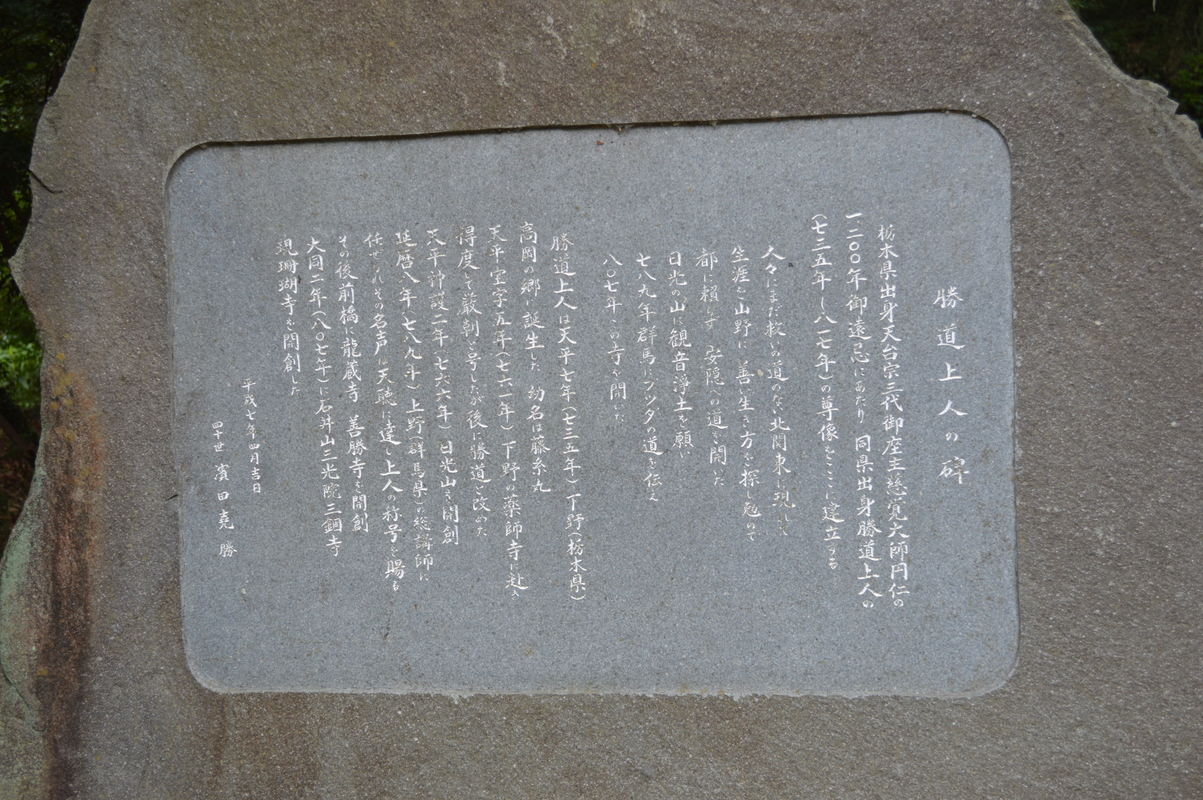 勝道上人の碑
栃木県出身天台宗三代御座主慈覚大師円仁の
一二〇〇年御遠忌にあたり 同県出身勝道上人の
(七三五年〜八一七年)の尊像をここに建立する
人々にまだ救いの道のない北関東に現れて
生涯を山野に 善い生き方を探し
都に頼らず 安隠への道を開いた
日光の山に観音浄土を願い
七八九年群馬にブッダの道を伝え
八〇七年 この寺を開いた
勝道上人は天平七年(七三五年)下野(栃木県)
高岡の郷に誕生した 幼名は藤糸丸
天平宝字五年(七六一年)下野の薬師寺に赴き
得度して厳朝と号したが後に勝道と改めた
天平神護二年(七六六年)日光山を開創
延暦八年(七八九年)上野(群馬県)の総講師に
任ぜられその名声は天聴に達し上人の称号を賜る
その後前橋に龍蔵寺 善勝寺を開創
大同二年(八〇七年)に石井山三光院三鈷寺
現珊瑚寺を開創した
平成七年四月吉日
四十世 濱田堯勝